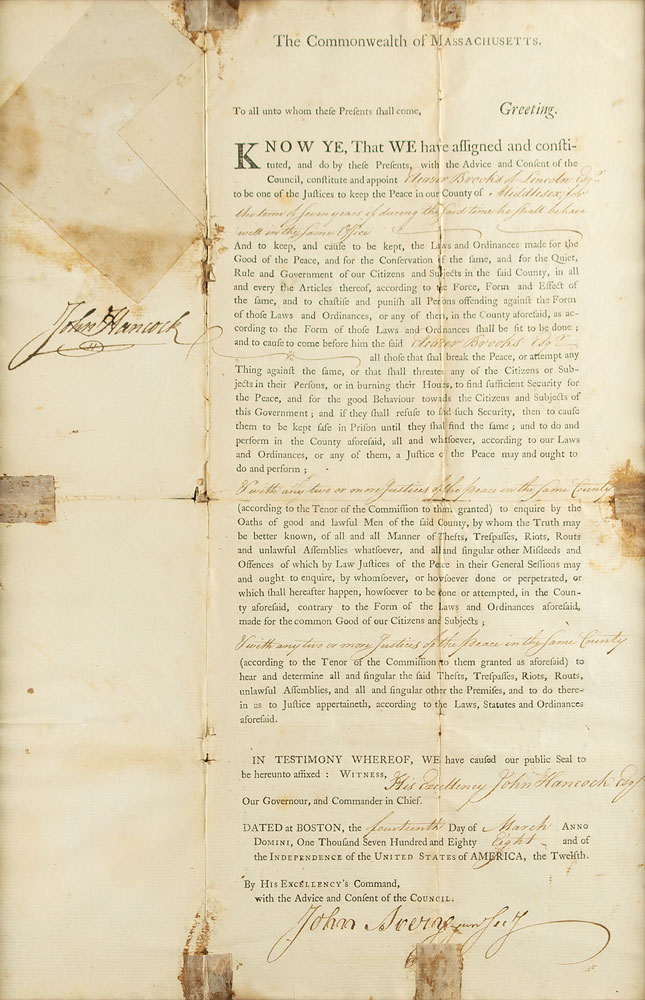 The Commonwealth of MASSACHUSETTS.
To all unto whom theſe Preſents ſhall come, Greeting.
KNOW YE, That WE have aſſigned and conſti-
tuted, and do by theſe Preſents, with the Advice and Conſent of the
Council, conſtitute and appoint Eleazer Brooks of Lincoln Esqr
to be one of the Juſtices to keep the Peace in our County of Middlesex, for
the term of ſeven years if during the ſaid time he ſhall behave
well in the ſame Office
And to keep, and cauſe to be kept, the Laws and Ordinances made for the
Good of the Peace, and for the Conſervation of the ſame, and for the Quiet,
Rule and Government of our Citizens and Subjects in the ſaid County, in all
and every the Articles thereof, according to the Force, Form and Effect of
the ſame, and to chaſtiſe and puniſh all Perſons offending againſt the Form
of thoſe Laws and Ordinances, or any of them, in the County aforeſaid, as ac-
cording to the Form of thoſe Laws and Ordnances ſhall be fit to be done ;
John Hancock
and to cauſe to come before him the ſaid Eleazer Brooks Esqr
all thoſe that ſhall break the Peace, or attempt any
Thing againſt the ſame, or that ſhall threaten any of the Citizens or Sub-
jects in their Perſons, or in burning their Houſes, to find ſufficient Security for
the Peace, and for the good Behaviour towards the Citizens and Subjects of
this Government ; and if they ſhall refuſe to find ſuch Security, then to cauſe
them to be kept ſafe in Priſon until they ſhall find the ſame ; and to do and
perform in the County aforeſaid, all and whatſoever, according to our Laws
and Ordinances, or any of them, a Juſtice of the Peace may and ought to
do and perform ;
& with any two or more Juſtices of the Peace in the ſame County
(according to the Tenor of the Commiſſion to them granted) to enquire by the
Oaths of good and lawful Men of the ſaid County, by whom the Truth may
be better known, of all and all Manner of Thefts, Treſpaſſes, Riots, Routs
and unlawful Aſſemblies whatſoever, and all and ſingular other Miſdeeds and
Offences of which by Law Juſtices of the Peace in their General Seſſions may
and ought to enquire, by whomſoever, or howſoever done or perpetrated, or
which ſhall hereafter happen, howſoever to be done or attempted, in the Coun-
ty aforeſaid, contrary to the Form of the Laws and Ordinances aforeſaid,
made for the common Good of our Citizens and Subjects ;
& with any two or more Juſtices of the Peace in the ſame County
(according to the Tenor of the Commiſſion to them granted as aforeſaid) to
hear and determine all and ſingular the ſaid Thefts, Treſpaſſes, Riots, Routs,
unlawful Aſſemblies, and all and ſingular other the Premiſes, and to do there-
in as to Juſtice appertaineth, according to the Laws, Statutes and Ordinances
aforeſaid.
IN TESTIMONY WHEREOF, WE have cauſed our public Seal to
be hereunto affixed : WITNESS, His Excellency John Hancock Esqr
Our Governour, and Commander in Chief.
DATED at BOSTON, the fourteenth Day of March ANNO
DOMINI, One Thouſand Seven Hundred and Eighty Eight and of
the INDEPENDENCE of the UNITED STATES of AMERICA, the Twelfth.
By HIS EXCELLENCY'S Command,
with the Advice and Conſent of the COUNCIL.
John Avery junr Secy